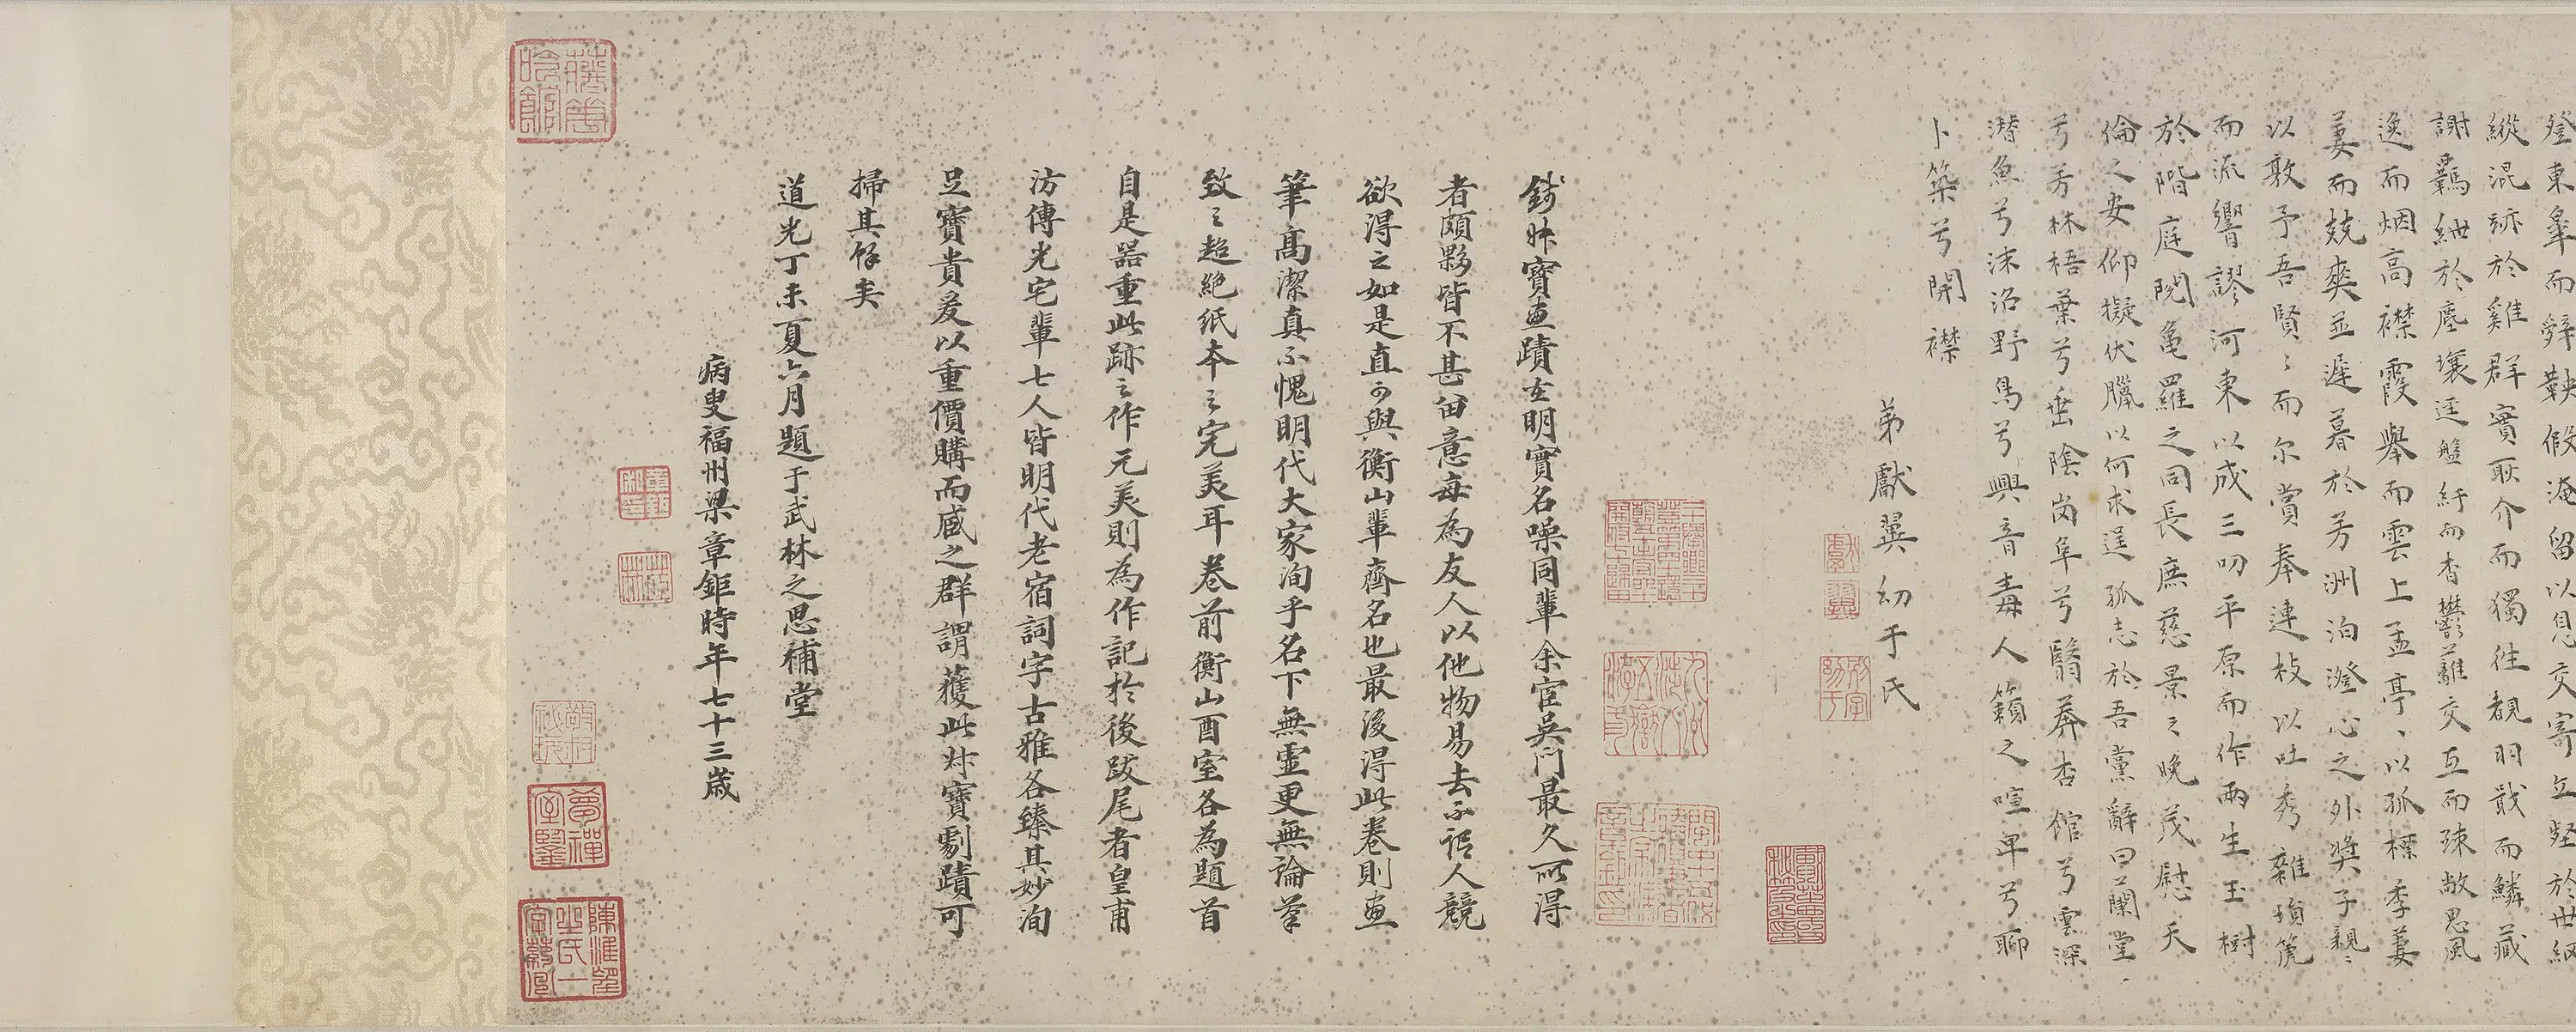 登東皋而辭鞅假淹留以息交寄丘壑於世網
縱混跡於雞群實耿介而獨往覩羽戢而鱗藏
謝羈紲於塵壤迳盤紆而杳鬱蘿交互而疎敞思風
逸而烟高襟霞舉而雲上孟亭、以孤標季萋
萋而競爽並遲暮於芳洲泊澄心之外奬予親〻
以敦予吾賢〻而尔賞奉連枝以吐秀雜塤箎
而流響謬河東以成三叨平原而作兩生玉樹
於階庭閱亀羅之同長庶慈景之晚茂慰天
倫之安仰擬伏臘以何求逞孤志於吾黨辭曰蘭堂、
兮芳林梧葉兮垂陰岗阜兮翳莽杏館兮雲深
潛魚兮沫沼野鳥兮興音毒人籟之喧卑兮聊
卜築兮開襟
弟獻翼幼于氏
錢叔寶畫蹟在明實名噪同輩余宦吳門最久所得
者頗夥皆不甚留意每為友人以他物易去不詫人競
欲得之如是直可與衡山輩齊名也最後得此卷則畫
筆高潔真不愧明代大家洵乎名下無虛更無論筆
致之超絕紙本之完美耳卷前衡山酉室各為題首
自是器重此跡之作元美則為作記於後跋尾者皇甫
汸傳光宅輩七人皆明代老宿詞字古雅各臻其妙洵
足寶貴爰以重價購而蔵之群謂獲此叔寶劇蹟可
掃其餘矣
道光丁未夏六月題于武林之思補堂
病叟福州梁章鉅時年七十三歲